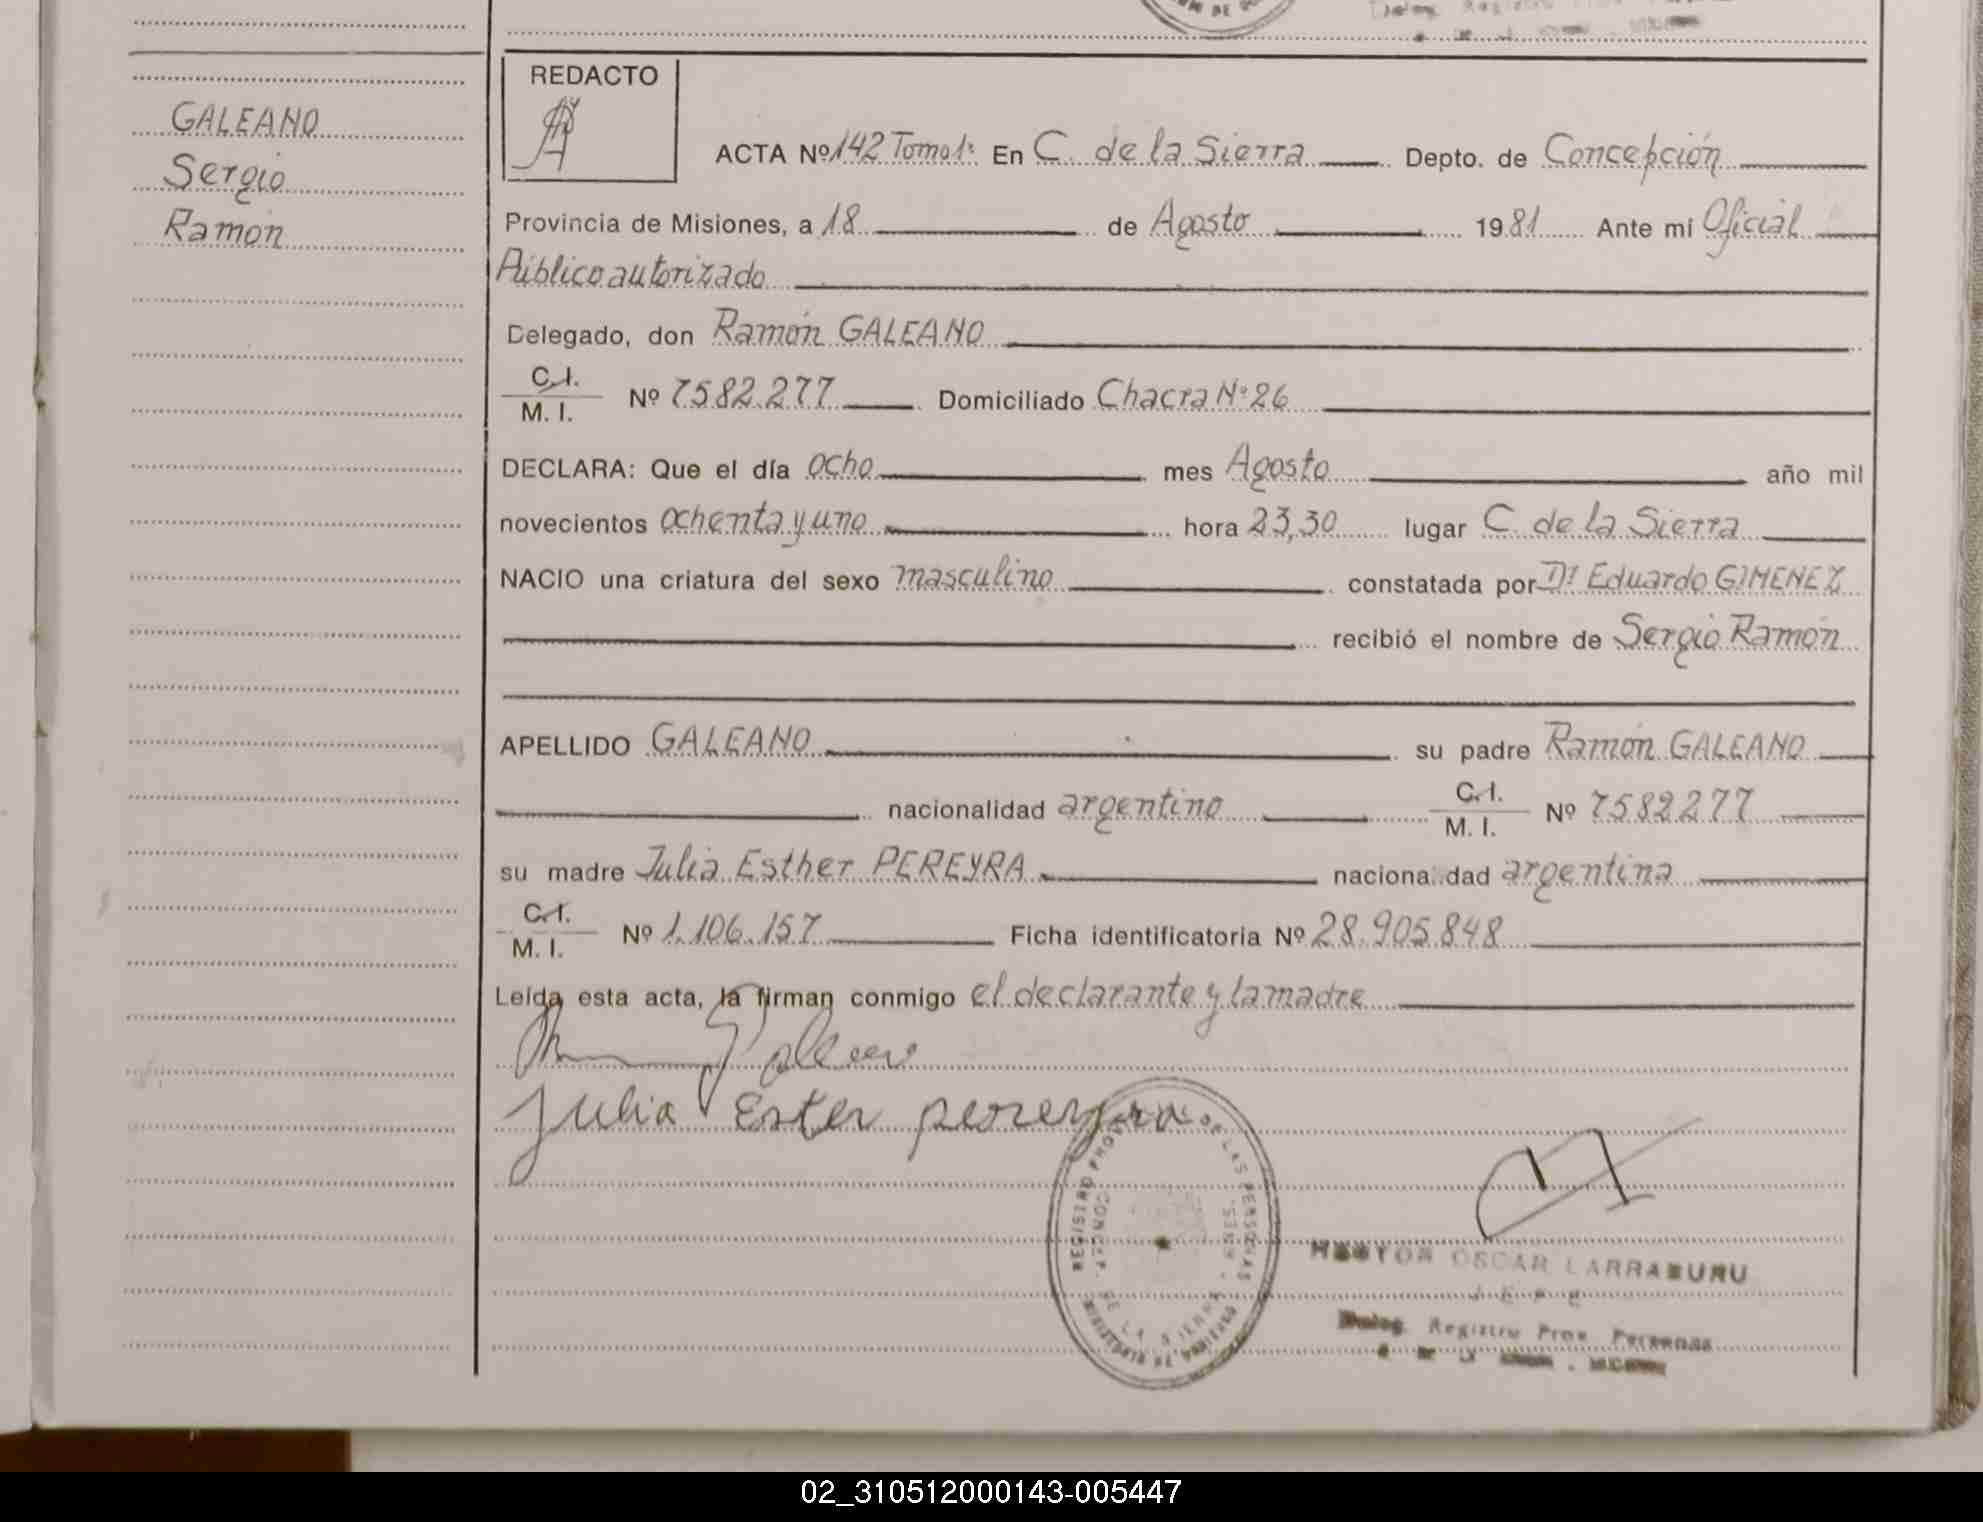 GALEANO
Sergio
Ramón
REDACTO
ACTA Nº 142 Tomo 1º En C. de la Sierra Depto. de Concepción
Provincia de Misiones, a 18 de Agosto 1981 Ante mi Oficial
Público autorizado
Delegado, don Ramón GALEANO
C. I.
M. I. Nº 7582.277 Domiciliado Chacra Nº 26
DECLARA: Que el día ocho mes Agosto año mil
novecientos ochenta y uno hora 23,30 lugar C. de la Sierra
NACIO una criatura del sexo masculino constatada por Dr Eduardo GIMENEZ
recibió el nombre de Sergio Ramón
APELLIDO GALEANO su padre Ramón GALEANO
nacionalidad argentino C. I.
M. I. Nº 7582277
su madre Julia Esther PEREYRA naciona dad argentina
C. I.
M. I. Nº 1.106.157 Ficha identificatoria Nº 28.905.848
Leída esta acta, la firman conmigo el declarante y la madre
Julia Ester pereyra
REGISTRO DE LAS PERSONAS
DE LA SIERRA
MINISTERIO DE GOBIERNO
OSCAR LARRABURU
Deleg. Registro Prov. Personas
02_310512000143-005447